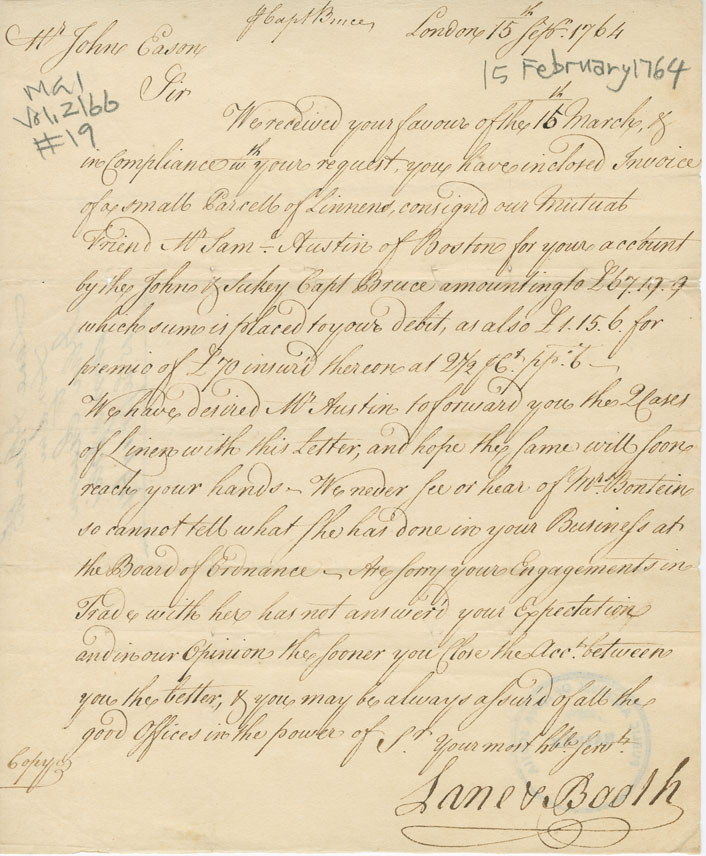 ℘ Capt Bruce
London 15th Sepr. 1764
Mr John Eason
15 February 1764
MG1
Vol. 2166
#19
Sir
We received your favour of the 15th March, &
in Compliance wth your request, you have inclosed Invoice
of a small Parcell of Linnens, consign'd our Mutual
Friend Mr Saml Austin of Boston for your account
by the John & Sukey Capt Bruce amounting to £67.19.9
which sum is placed to your debit, as also £1.15.6. for
premio of £70 insur'd thereon at 2½ ℘ Ct.
We have desired Mr Austin to forward you the 2 Cases
of Linen with this Letter, and hope the same will soon
reach your hands – We never see or hear of Mrs Bontein
so cannot tell what she has done in your Business at
the Board of Ordnance – Are sorry your Engagements in
Trade with her has not answer'd your Expectation
and in our Opinion the sooner you Close the Acct. between
you the better, & you may be always assur'd of all the
good Offices in the power of Sr. Your most hble Servts.
Copy
Lane & Booth